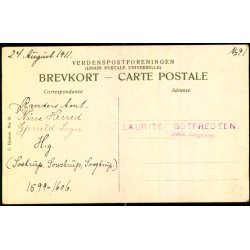 24 August 1911.
VERDENSPOSTFORENINGEN
(UNION POSTALE UNIVERSELLE)
BREVKORT – CARTE POSTALE
Correspondance
Adresse
Randers Amt.
Nørre Herred
Gjerrild Sogn
H.g
(Sostrup,
1599-1606.
LAURITS GOTFREDSEN